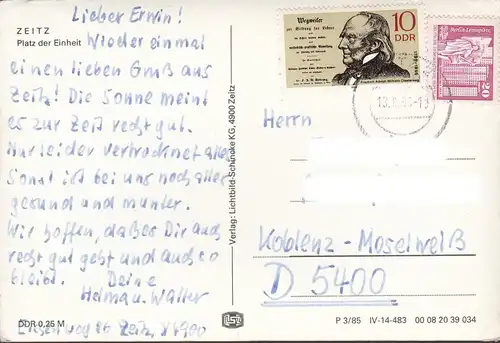 ZEITZ
Platz der Einheit
Lieber Erwin!
Wieder einmal
einen lieben Gruß aus
Zeitz! Die Sonne meint
es zur Zeit recht gut.
Nur leider vertrocknet alles.
Sonst ist bei uns noch alles
gesund und munter.
Wir hoffen, daß es Dir auch
recht gut geht und auch so
bleibt. Deine
Helma u. Walter
Zeitz, 4900
DDR 0,25 M
Verlag: Lichtbild-Schincke KG, 4900 Zeitz
Wegweiser
zur Bildung für Lehrer
10
DDR
Berlin, Leninplatz
20
Herrn
Koblenz - Moselweiß
D 5400
P 3/85 IV-14-483 00 08 20 39 034